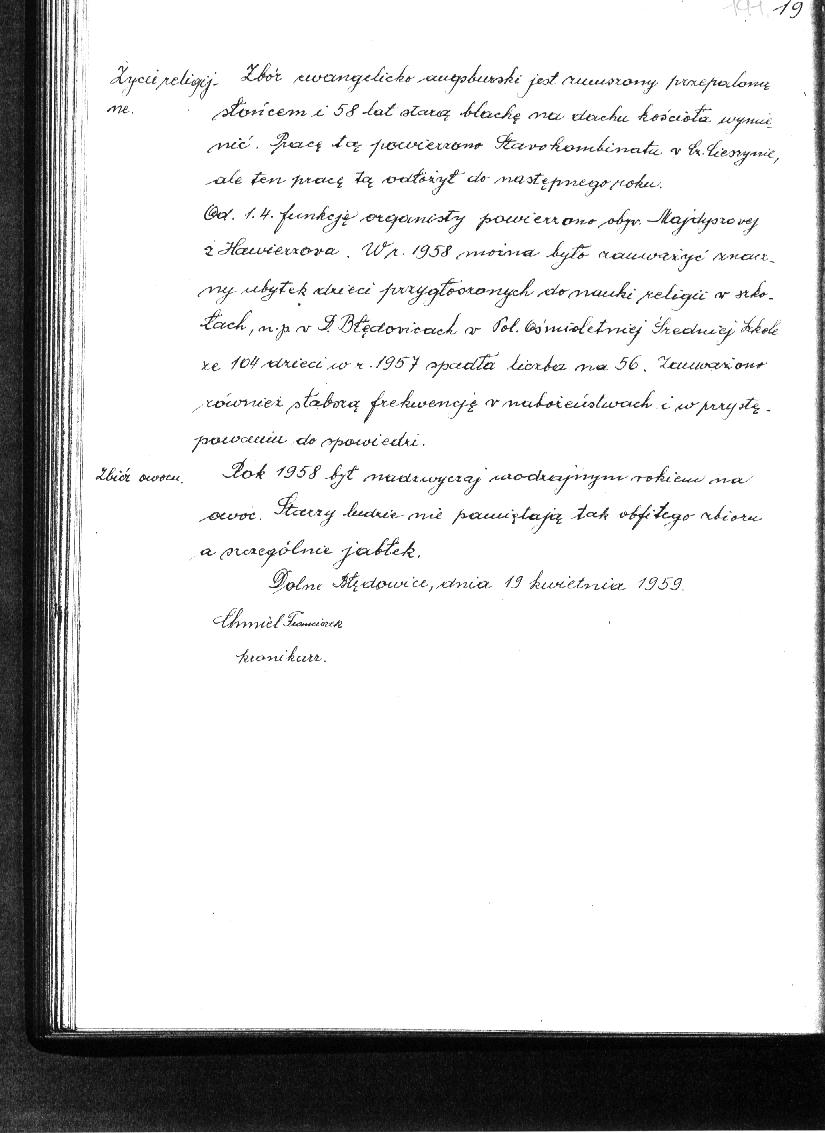 19
Życie religij-
ne.
Zbór ewangelicko augsburski jest zmuszony przepaloną
słońcem i 58 lat starą blachę na dachu kościoła wymie
nić. Pracę tą powierzono Stavokombinatu v Cz. Cieszynie,
ale ten pracę tą odłożył do następnego roku.
Od. 1.4. funkcję organisty powierzono obyv. Majdyszovej
z Hawierzova. W r. 1958 można było zauważyć znacz-
ny ubytek dzieci przygłoszonych do nauki religii v szko-
łach, n.p v D. Błędovicach v Pol. Ośmioletniej Średniej Szkole
ze 104 dzieci w r. 1957 spadła liczba na 56. Zauważono
również słabszą frekwencję v nabożeństwach i w przystę-
powaniu do spowiedzi.
Zbiór owocu.
Rok 1958 był nadzwyczaj urodzajnym rokiem na
owoc. Starzy ludzie nie pamiętają tak obfitego zbioru
a szczególnie jabłek.
Dolne Błędowice, dnia 19 kwietnia 1959.
Chmiel Franciszek
kronikarz.